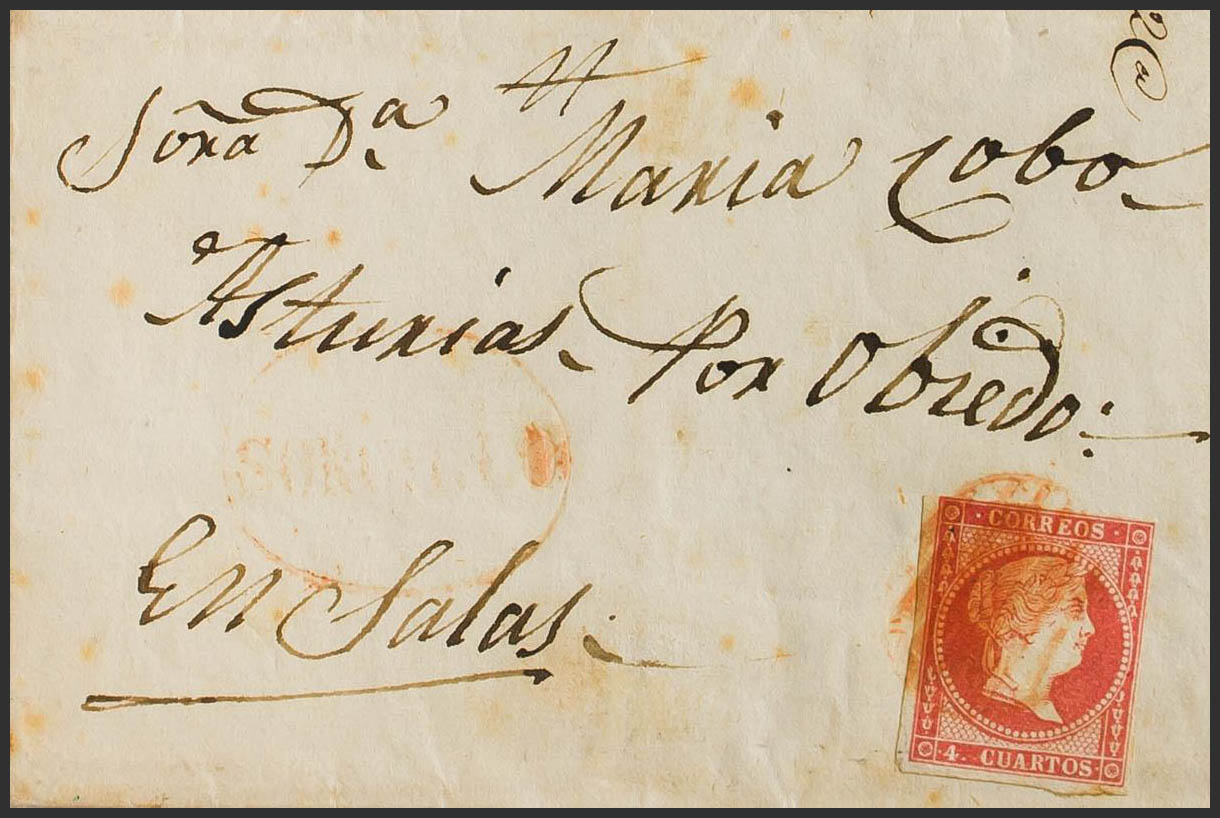 Sõra Dª Maria Cobo
Asturias Por Obiedo
En Salas
CORREOS
4 CUARTOS